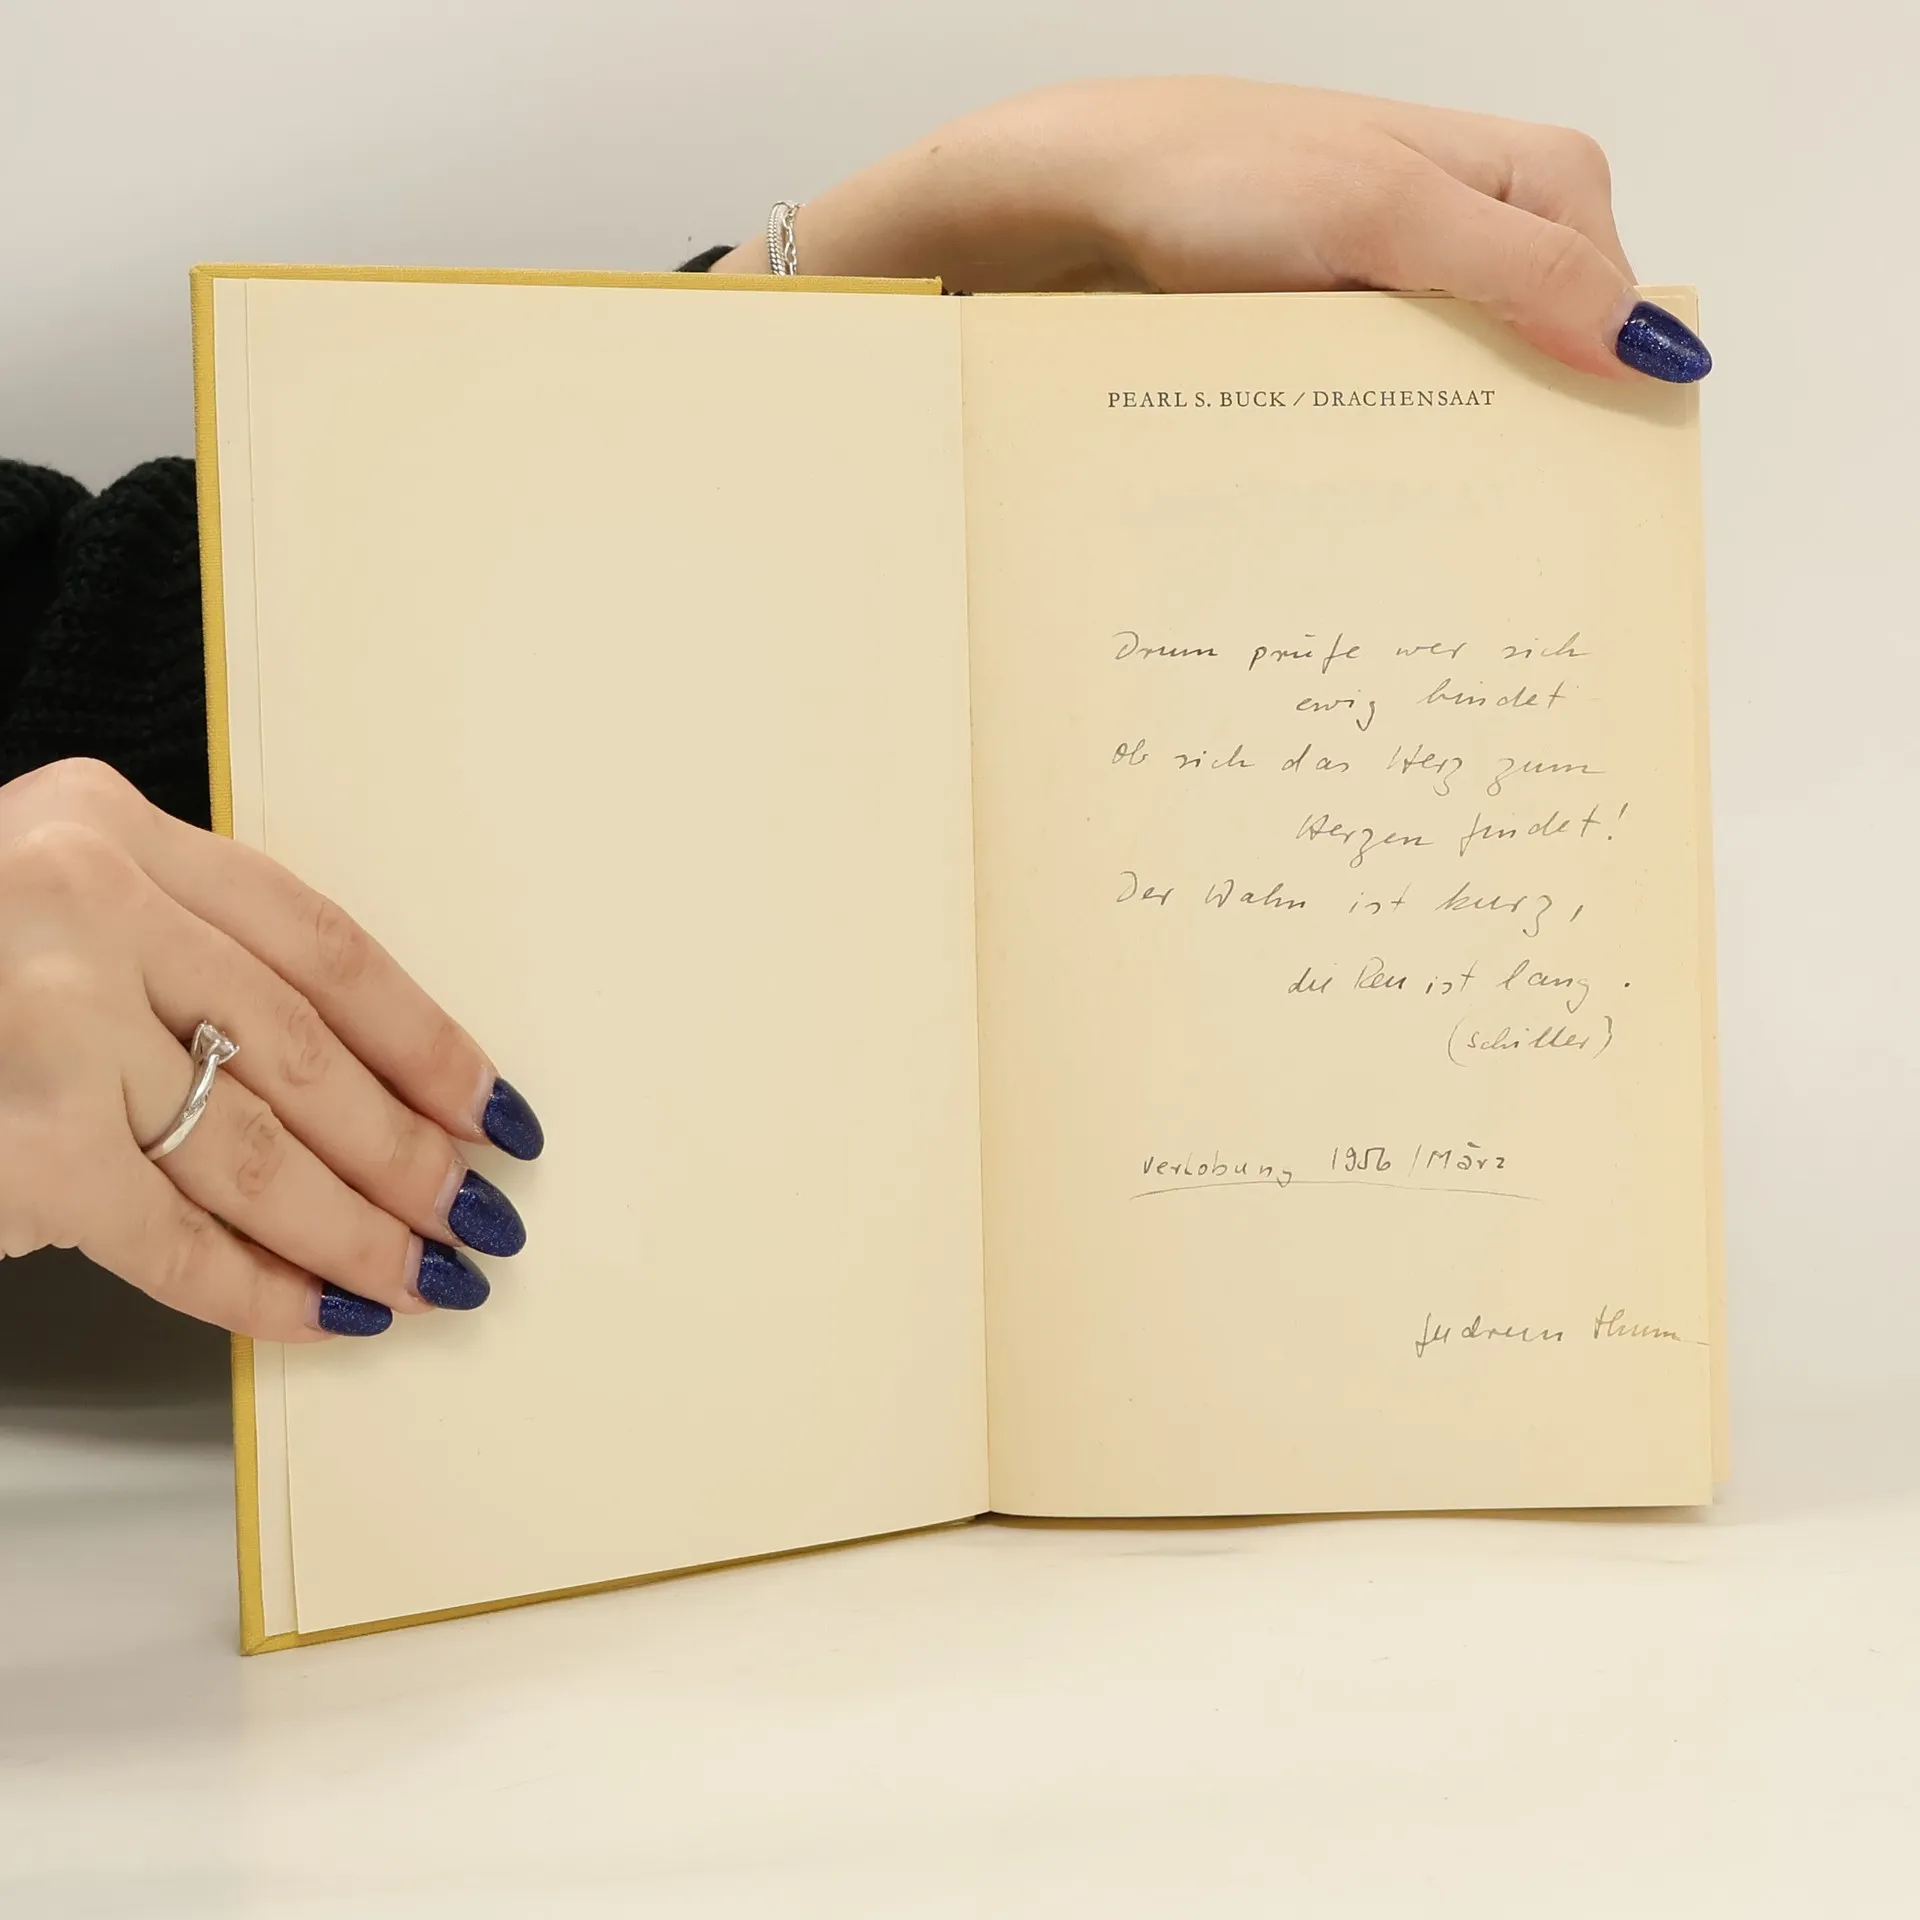 PEARL S. BUCK / DRACHENSAAT
Drum prüfe wer sich
ewig bindet
Ob sich das Herz zum
Herzen findet!
Der Wahn ist kurz,
die Reu ist lang.
(Schiller)
Verlobung 1956 / März
Gudrun Thum